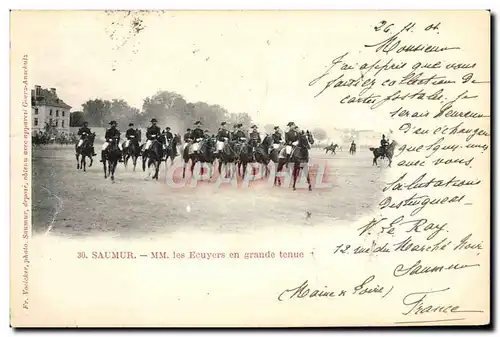 26. 11. 04
Monsieur
J'ai appris que vous
faisiez collection de
cartes postales. Je
serais heureux
d'en échanger
quelques unes
avec vous.
Salutations
Distinguées
V. Le Ray
12 rue du Marché Noir
Saumur
(Maine & Loire)
France
30. SAUMUR. — MM. les Ecuyers en grande tenue
Fr. Voelcker, photo. Saumur, déposé, obtenu avec appareil Goerz-Anschütz